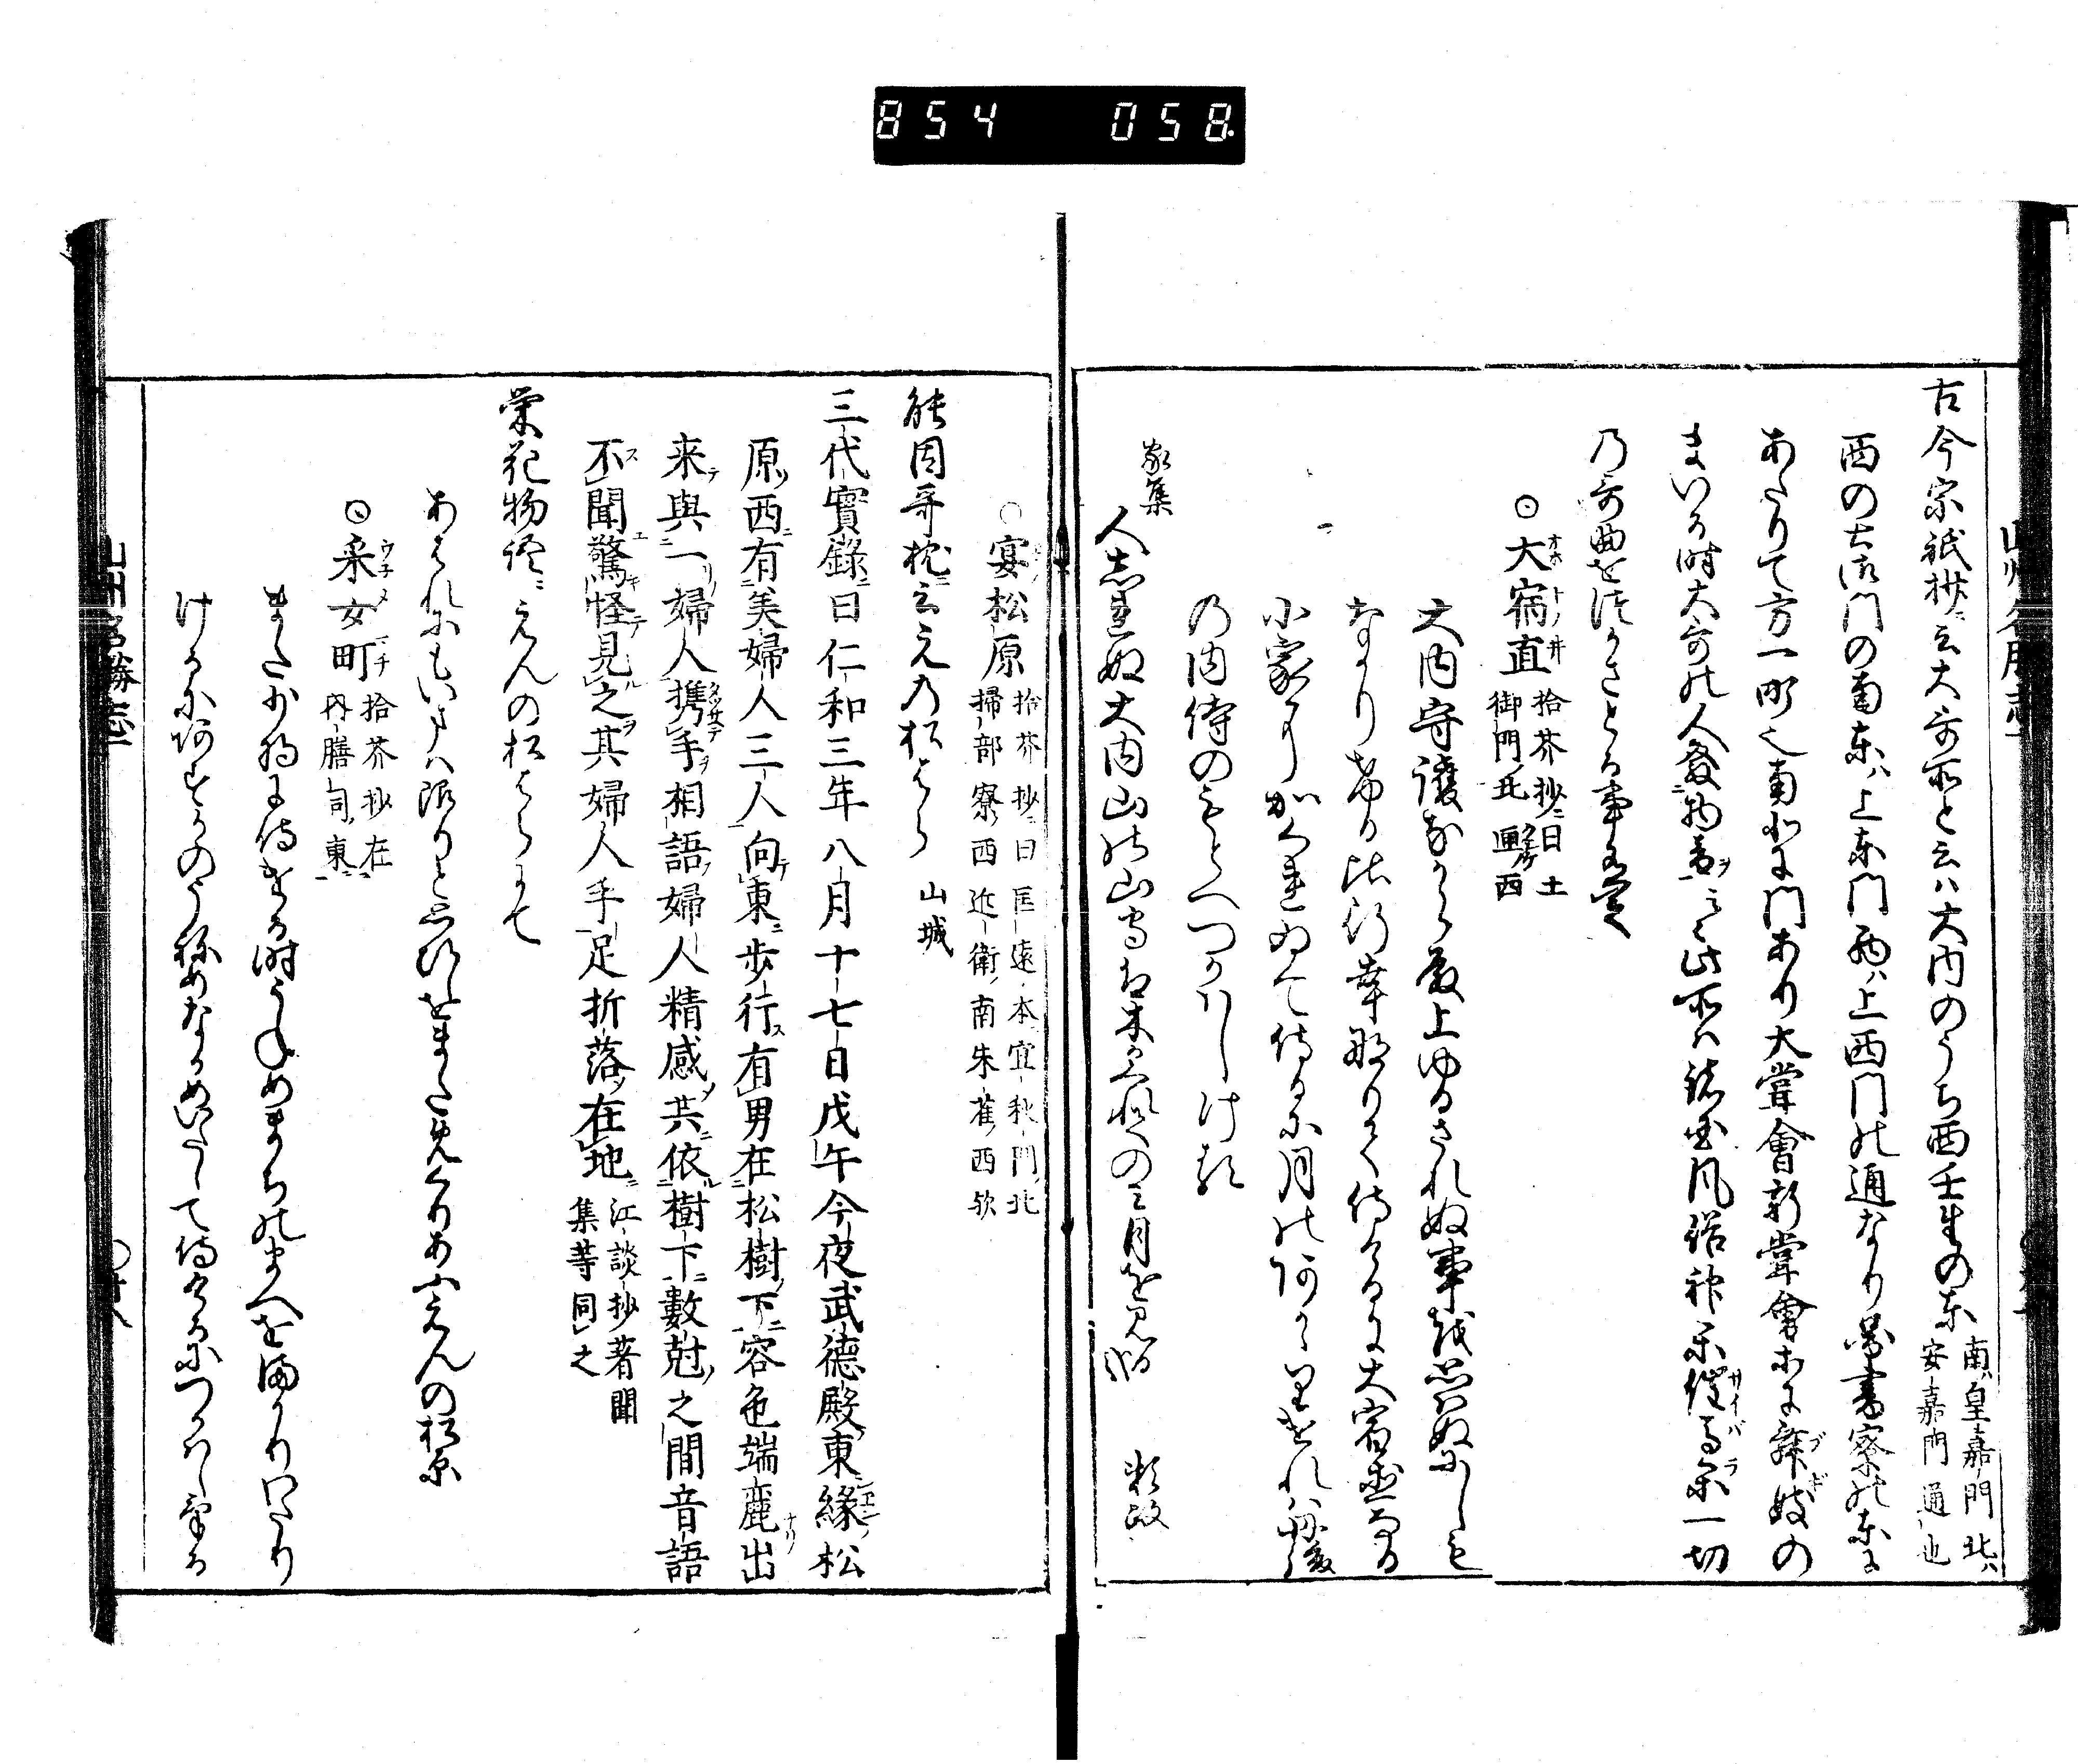 854 058
古今宗祇抄ニ云大哥所と云ハ大内のうち西壬生の東
南ハ皇嘉門北ハ
安嘉門通也
西の大御門の南東ハ上東門西ハ上西門の通なり圖書寮の東に
あたりて方一町也南北に門あり大嘗會新嘗會等に舞妓の
まいる時大哥の人發物音ヲこゝ此所ハ諸国風俗神楽催馬楽一切
乃哥曲をつかさとる事也
大宿直
拾芥抄ニ曰土
御門北
大内守護ながら殿上ゆるされぬ事を思はぬにしも
なかりける比行幸なりて侍けるに大宿直なる
小家にかくれゐて侍るに月のあかゝりけれハ
の内侍のもとへつかハしける
家集
人しれぬ大内山の山守は木かくれてのみ月を見る哉 頼政
宴松原
拾芥抄ニ曰匡遠本宜秋門北
掃部寮西近衛南朱雀西欤
能因哥枕ニ云えの松はら 山城
三代實錄ニ曰仁和三年八月十七日戊午今夜武德殿東緣松
原西有美婦人三人向東步行有男在松樹下容色端麗出
来與一婦人携手相語婦人精感共依樹下數尅之間音語
不聞驚怪見之其婦人手足折落在地
江談抄著聞
集等同之
栄花物語ニえんの松はらにて
あはれにもいまハ限りと思ひしをまためくりあふえんの松原
采女町
拾芥抄在
内膳司東
また少将に侍ける時うねめまちのまへをまかりわたり
けるにあすかのうねめなかめいたして侍けるにつかハしける
山州名勝志